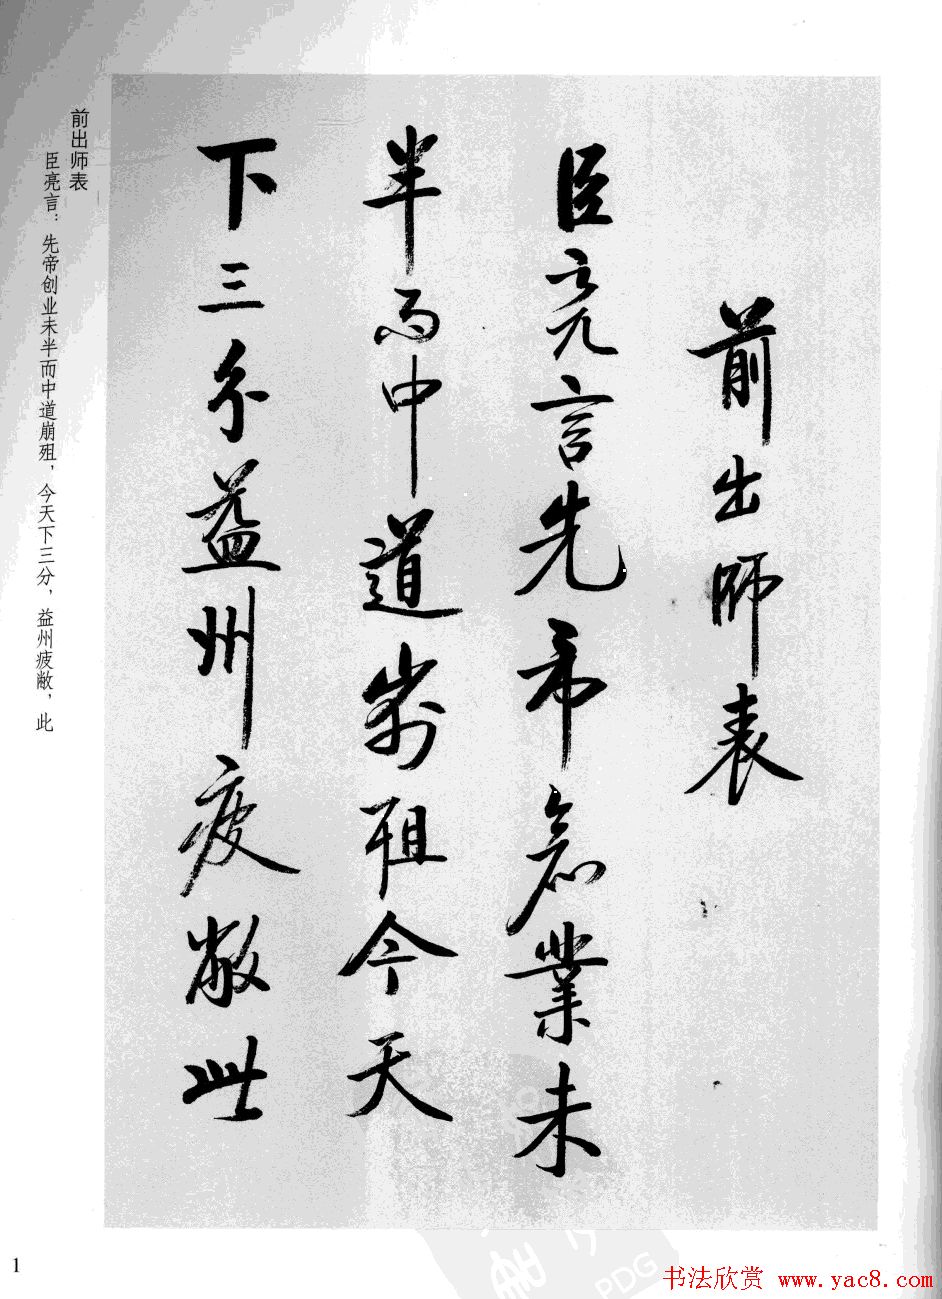 前出師表
臣亮言先帝創業未
半而中道崩殂今天
下三分益州疲敝此
前出师表
臣亮言：先帝创业未半而中道崩殂，今天下三分，益州疲敝，此
1
PDG
书法欣赏 www.yac8.com